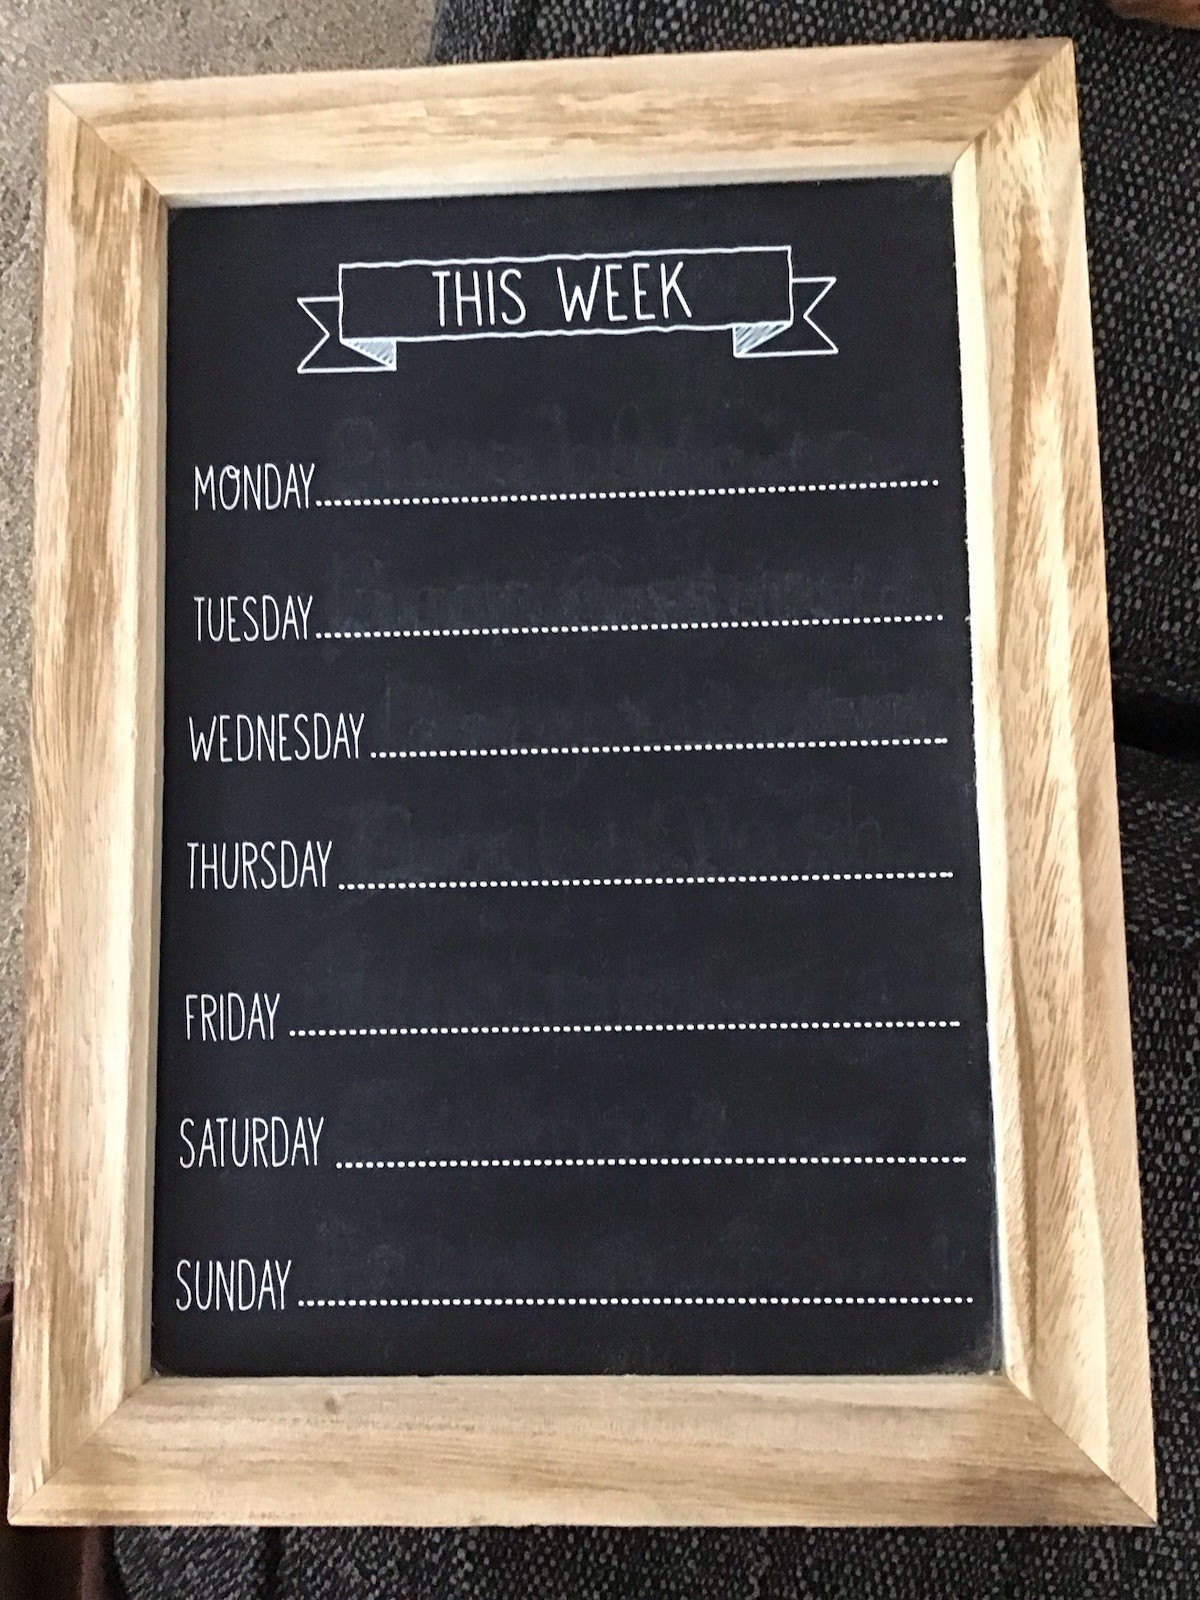 THIS WEEK
MONDAY
TUESDAY
WEDNESDAY
THURSDAY
FRIDAY
SATURDAY
SUNDAY